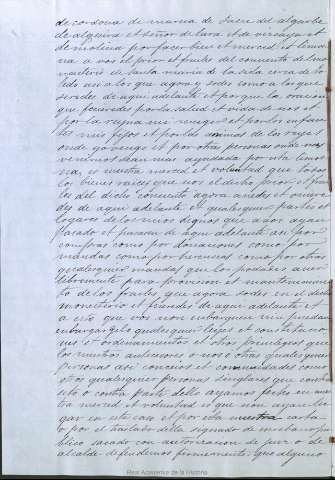 de cordova de murcia de Jaen del algarbe
de algezira et señor de lara et de vizcaya et
de molina por facer bien et merced et limos
na a vos el prior et frailes del convento de l mo
nasterio de Santa maria de la sisla cerca de to
ledo asi a los que agora y sodes como a los que y
seredes de aqui adelante et porque la oracion
que fecieredes por la salud et vida de nos et
por la reyna mi muger et por los infan
tes mis fijos et por las animas de los reyes
onde yo vengo et por otras personas onde nos
venimos sean mas ayudadas por esta limos
na, es nuestra merced et voluntad que todos
los bienes raices que vos el dicho prior et frai
les del dicho convento agora avedes et oviere
des de aqui adelante en qualesquier partes et
logares de los mios regnos que a vos ayan
pasado et pasaran de aqui adelante asi por
compras como por donaciones como por
mandas como por herencias como por otras
qualesquier mandas que los podades aver
libremente para provision et mantenimien
to de los frailes que agora sodes en el dicho
monesterio et seredes de aqui adelante et
a esto que vos non embarguen nin puedan
embargar qualesquier leyes et constitucio
nes et ordenamientos et otros privilegios que
los nuestros antecesores o nos o otras qualesquier
personas asi concejos et comunidades como
otras qualesquier personas singulares que contra
esto o contra parte dello ayamos fecho ca nu
estra merced et voluntad es que non ayan lu
gar en este caso et por esta nuestra carta
o por el traslado della signado de escribano pu
blico sacado con autorizacion de juez o de
alcalde defendemos firmemente que alguno
Real Academia de la Historia